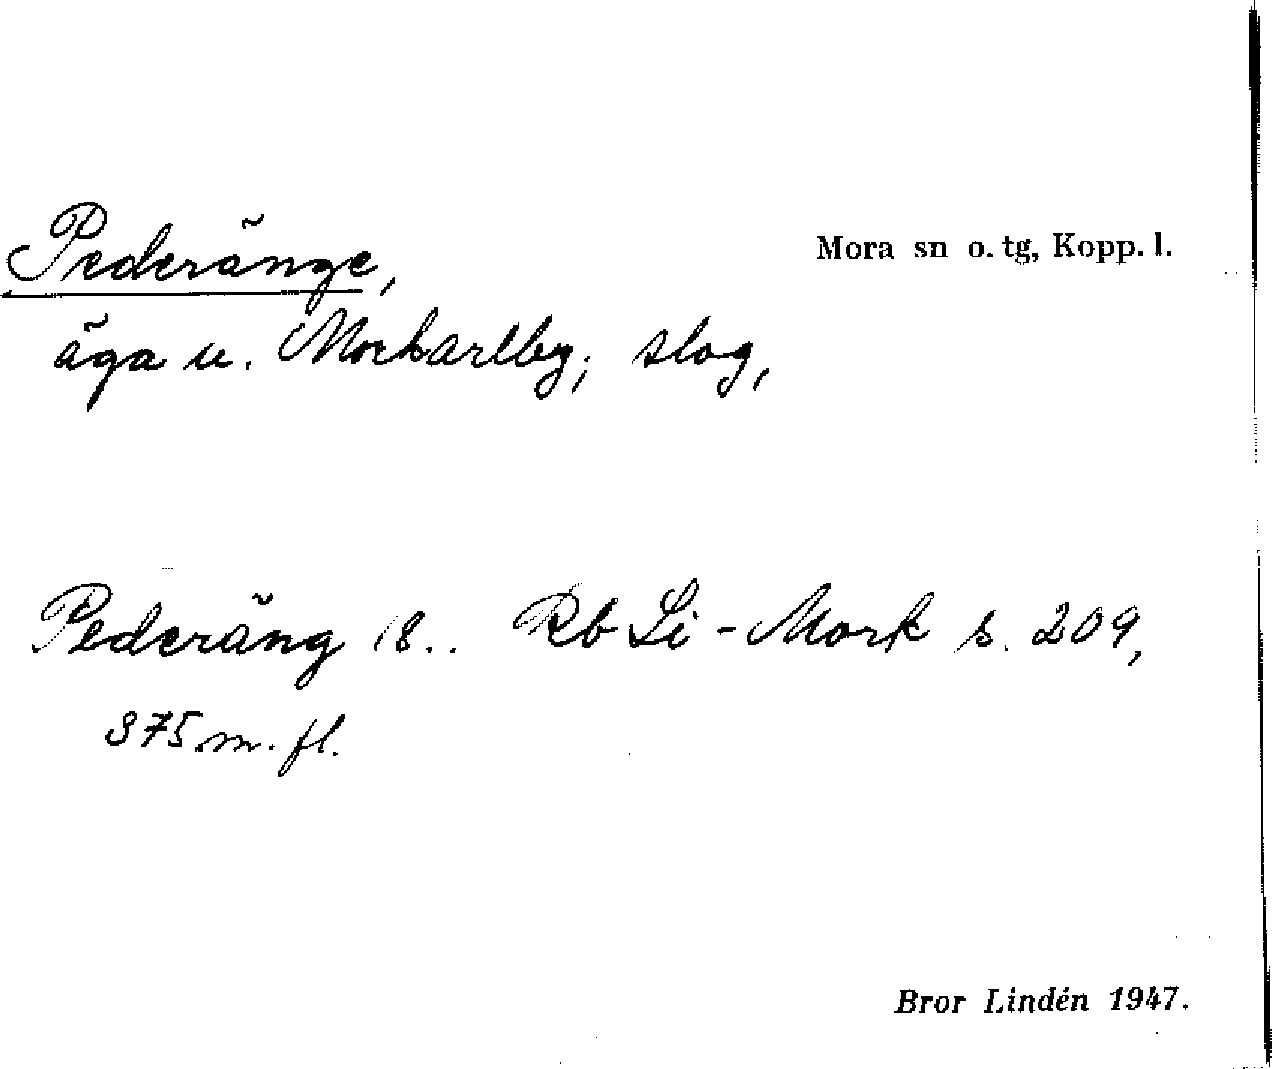 Pederänge,
Mora sn o. tg, Kopp. l.
äga u. Morkarlby; slog,
Pederäng 18.. Rb Li-Mork s. 209,
375 m. fl.
Bror Lindén 1947.